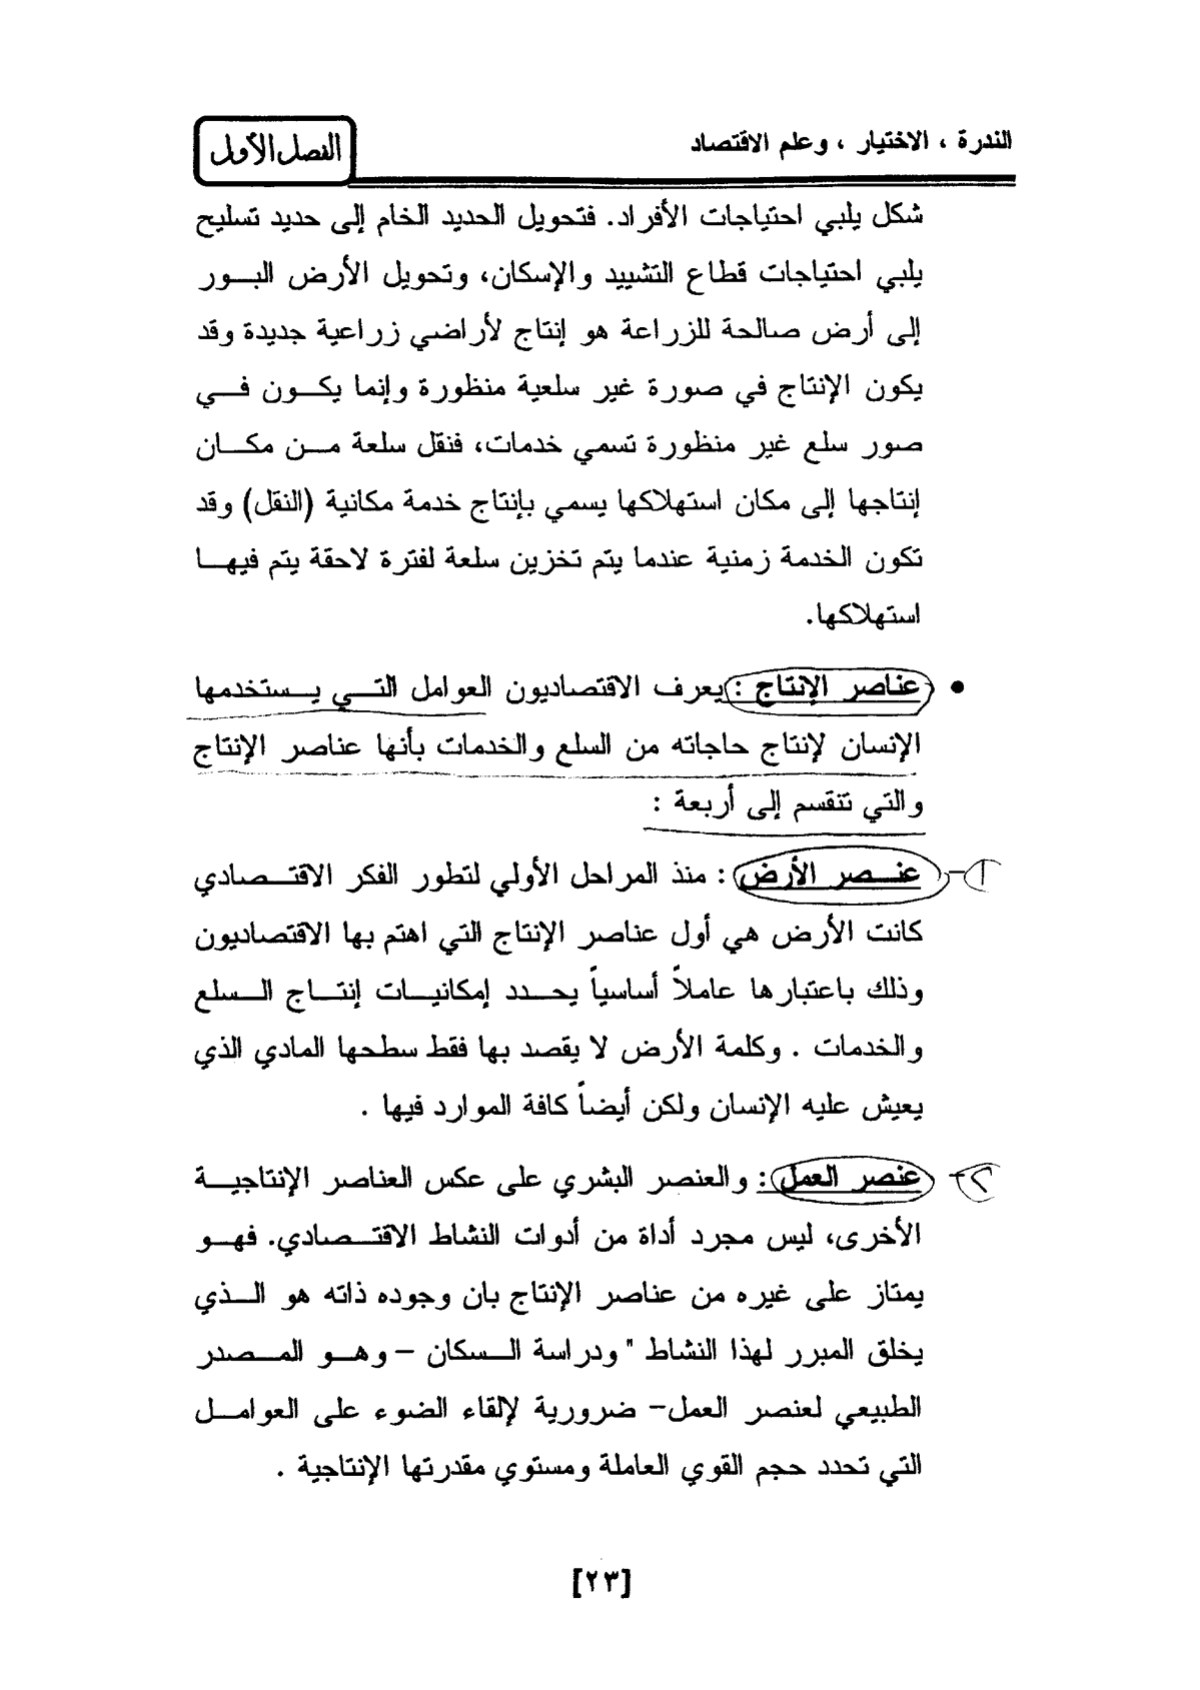 الندرة ، الاختيار ، وعلم الاقتصاد
الفصل الأول
شكل يلبي احتياجات الأفراد. فتحويل الحديد الخام إلى حديد تسليح
يلبي احتياجات قطاع التشييد والإسكان، وتحويل الأرض البور
إلى أرض صالحة للزراعة هو إنتاج لأراضي زراعية جديدة وقد
يكون الإنتاج في صورة غير سلعية منظورة وإنما يكون في
صور سلع غير منظورة تسمي خدمات، فنقل سلعة من مكان
إنتاجها إلى مكان استهلاكها يسمي بإنتاج خدمة مكانية (النقل) وقد
تكون الخدمة زمنية عندما يتم تخزين سلعة لفترة لاحقة يتم فيها
استهلاكها.
• عناصر الإنتاج : يعرف الاقتصاديون العوامل التي يستخدمها
الإنسان لإنتاج حاجاته من السلع والخدمات بأنها عناصر الإنتاج
والتي تنقسم إلى أربعة :
١- عنصر الأرض : منذ المراحل الأولي لتطور الفكر الاقتصادي
كانت الأرض هي أول عناصر الإنتاج التي اهتم بها الاقتصاديون
وذلك باعتبارها عاملاً أساسياً يحدد إمكانيات إنتاج السلع
والخدمات . وكلمة الأرض لا يقصد بها فقط سطحها المادي الذي
يعيش عليه الإنسان ولكن أيضاً كافة الموارد فيها .
٢- عنصر العمل : والعنصر البشري على عكس العناصر الإنتاجية
الأخرى، ليس مجرد أداة من أدوات النشاط الاقتصادي. فهو
يمتاز على غيره من عناصر الإنتاج بان وجوده ذاته هو الذي
يخلق المبرر لهذا النشاط " ودراسة السكان – وهو المصدر
الطبيعي لعنصر العمل– ضرورية لإلقاء الضوء على العوامل
التي تحدد حجم القوي العاملة ومستوي مقدرتها الإنتاجية .
[٢٣]